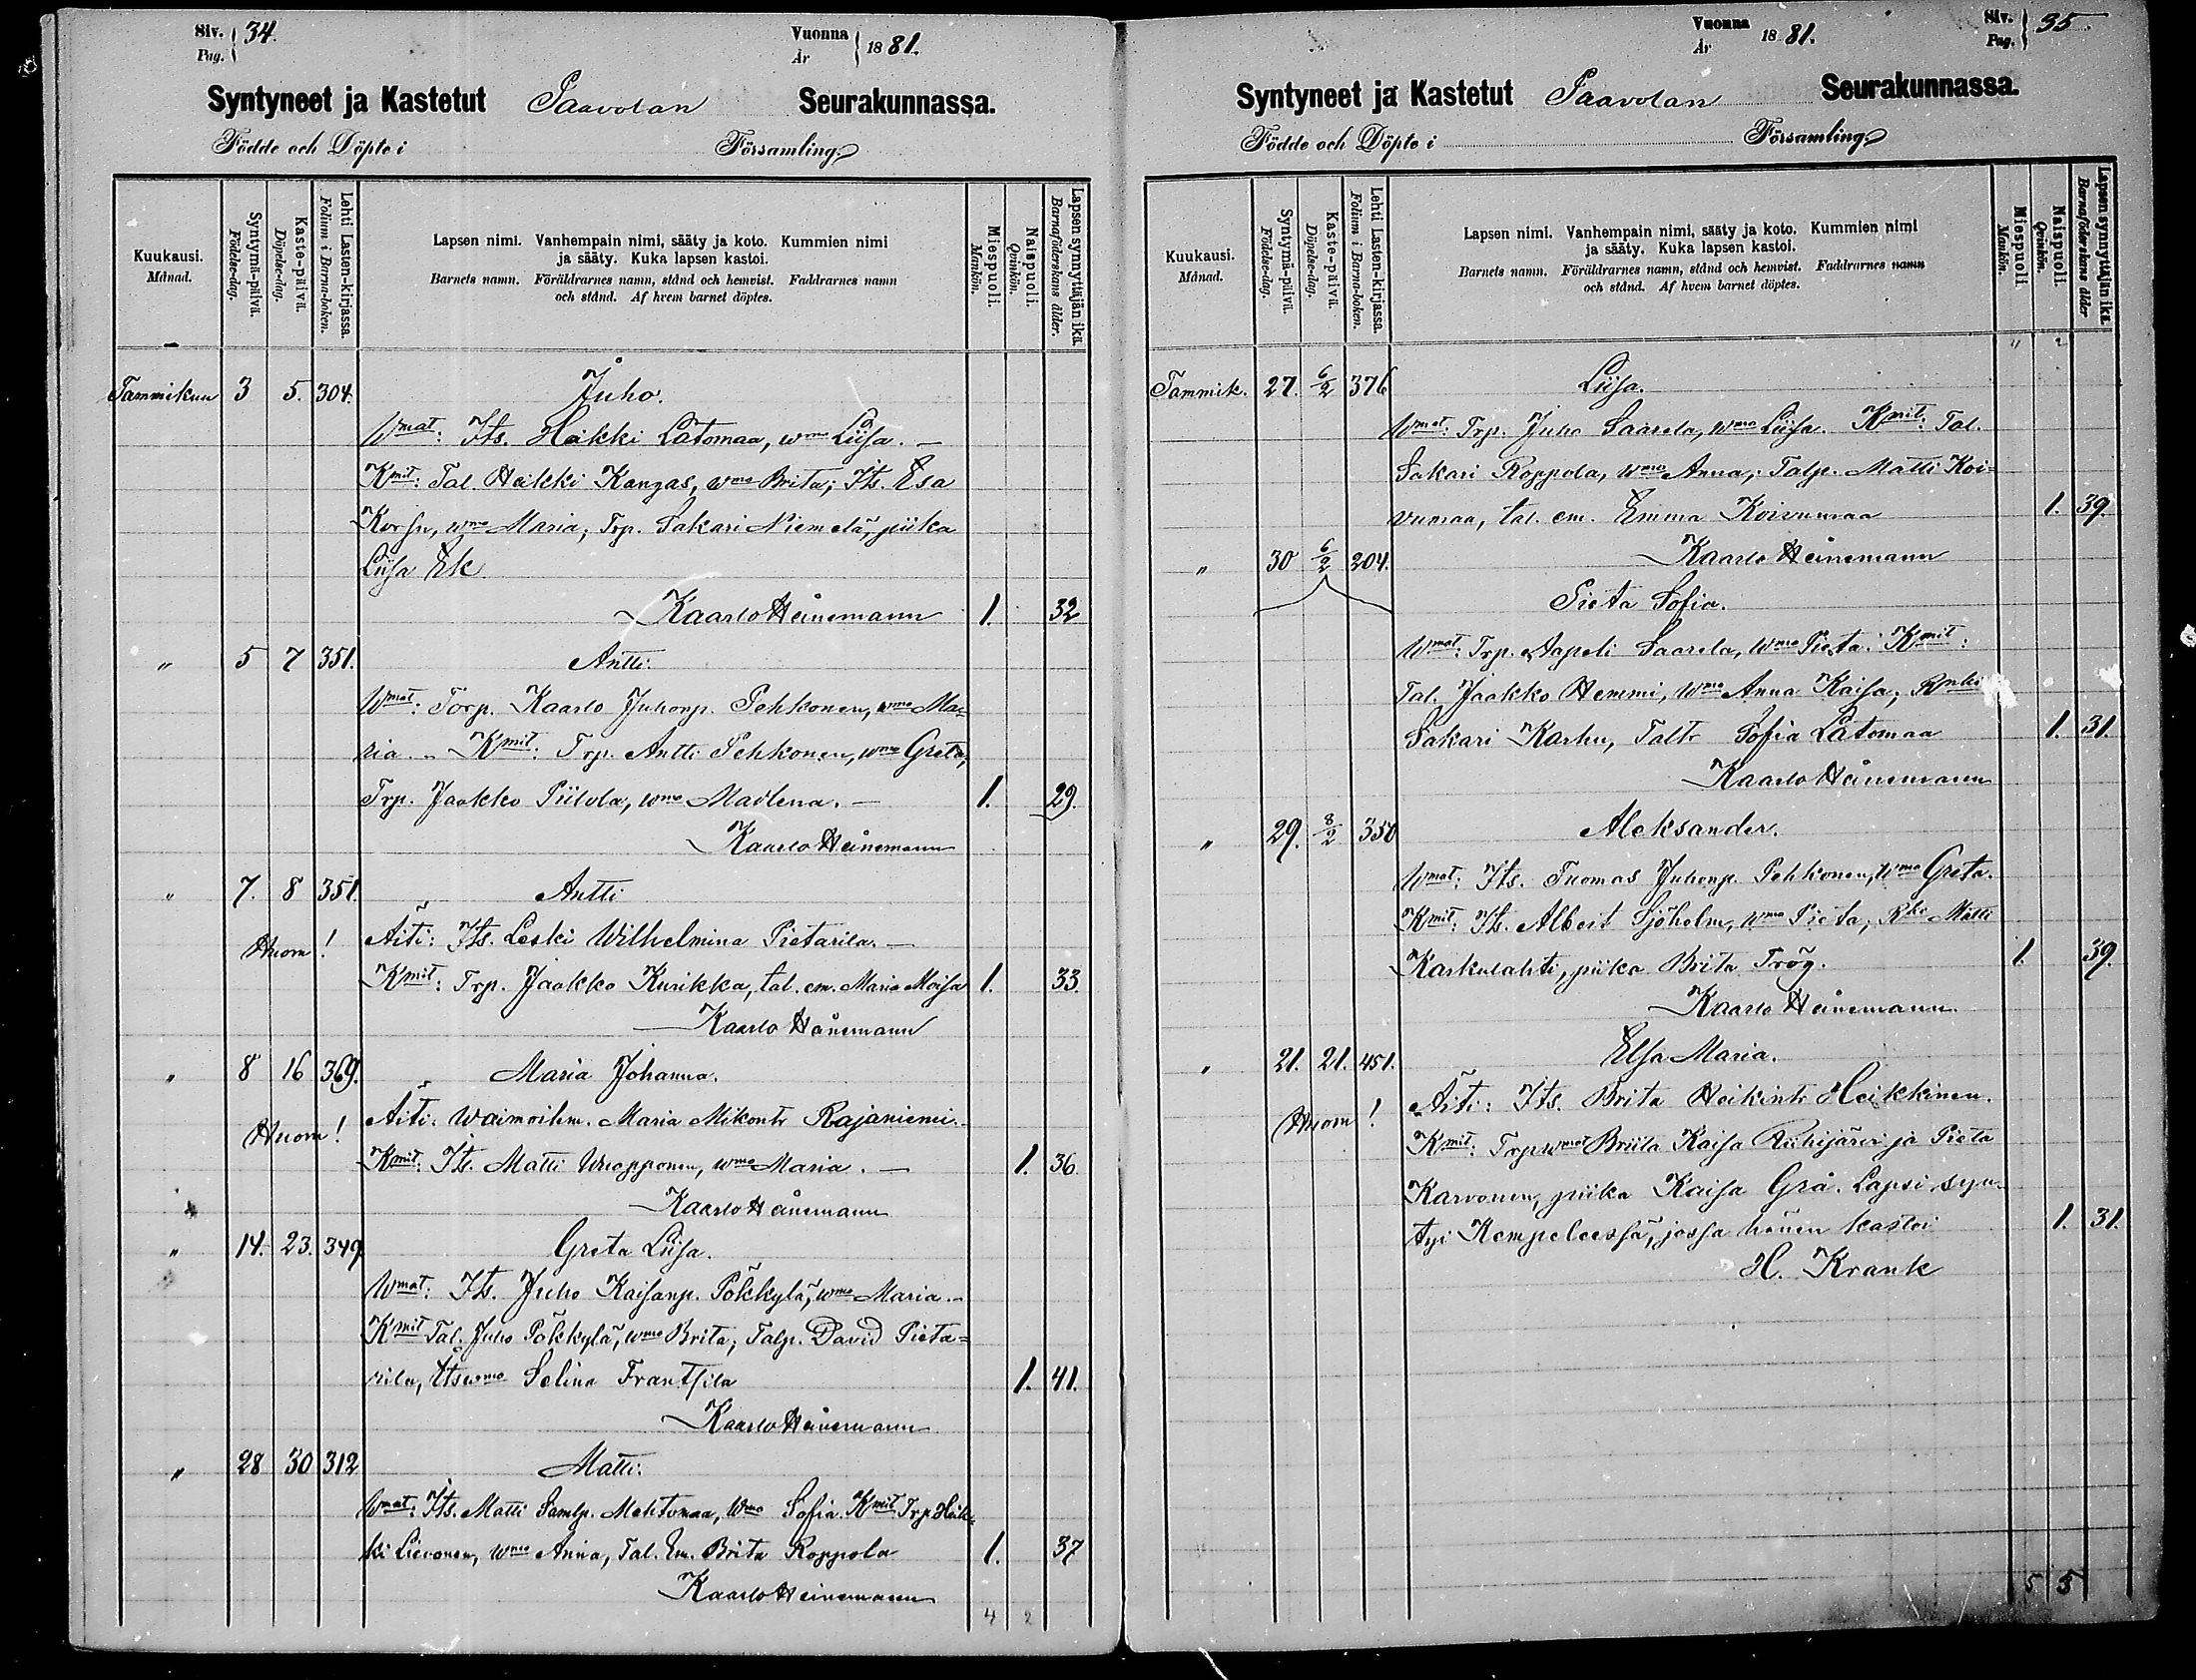 Siv. 34.
Pag.
Vuonna 1881.
År
Syntyneet ja Kastetut Paavolan Seurakunnassa.
Födde och Döpte i Församling
Kuukausi.
Månad.
Syntymä-päivä.
Födelse-dag.
Kaste-päivä.
Döpelse-dag.
Lehti Lasten-kirjassa.
Folium i Barna-boken.
Lapsen nimi. Vanhempain nimi, sääty ja koto. Kummien nimi
ja sääty. Kuka lapsen kastoi.
Barnets namn. Föräldrarnes namn, stånd och hemvist. Faddrarnes namn
och stånd. Af hvem barnet döptes.
Miespuoli.
Mankön.
Naispuoli.
Qvinkön.
Lapsen synnyttäjän ikä.
Barnaföderskans ålder.
Tammikuu 3 5. 304. Juho.
Wmat: Its. Heikki Låtomaa, wmo Liisa. —
Kmit: Tal. Heikki Kangas, wmo Brita; Its. Esa
Korhu, wmo Maria; Trp. Sakari Niemelä, piika
Liisa Ek
Kaarlo Heinemann 1. 32
" 5 7 351. Antti.
Wmat: Torp. Kaarlo Juhonp. Pehkonen, wmo Ma=
ria. — Kmit: Trp. Antti Pehkonen, wmo Greta,
Trp. Jaakko Piilola, wmo Madlena. — 1. 29.
Kaarlo Heinemann
" 7. 8 351. Antti
Huom! Äiti: Its. Leski Wilhelmina Pietarila. —
Kmit: Trp. Jaakko Kurikka, tal. em. Maria Maija 1. 33.
Kaarlo Heinemann
" 8 16 369. Maria Johanna.
Huom! Äiti: Waimoihm. Maria Mikontr Rajaniemi. —
Kmit: Its. Matti Wuopponen, wmo Maria. — 1. 36.
Kaarlo Heinemann
" 14. 23. 349 Greta Liisa.
Wmat: Its. Juho Kaisanp. Pökkylä, wmo Maria. —
Kmit Tal. Juho Pökkylä, wmo Brita; Talp. David Pieta=
rila, Itswmo Selina Frantsila 1. 41.
Kaarlo Heinemann
" 28 30 312 Matti.
Wmat: Its. Matti Samlp. Mehtomaa, Wmo Sofia. Kmit Trp. Heik=
ki Lievonen, Wmo Anna, Tal. Em. Brita Roppola 1. 37
Kaarlo Heinemann
4 2
Vuonna 1881.
År
Siv. 35
Pag.
Syntyneet ja Kastetut Paavolan Seurakunnassa.
Födde och Döpte i Församling
Kuukausi.
Månad.
Syntymä-päivä.
Födelse-dag.
Kaste-päivä.
Döpelse-dag.
Lehti Lasten-kirjassa.
Folium i Barna-boken.
Lapsen nimi. Vanhempain nimi, sääty ja koto. Kummien nimi
ja sääty. Kuka lapsen kastoi.
Barnets namn. Föräldrarnes namn, stånd och hemvist. Faddrarnes namn
och stånd. Af hvem barnet döptes.
Miespuoli
Mankön.
Naispuoli.
Qvinkön.
Lapsen synnyttäjän ikä.
Barnaföderskans ålder
Tammik. 27. 6/2 376 Liisa.
Wmat: Trp. Juho Saarela, Wmo Liisa. Kmit: Tal.
Sakari Roppola, Wmo Anna; Talp. Matti Koi=
vumaa, tal. em. Emma Koivumaa 1. 39.
Kaarlo Heinemann
" 30 6/2 204.
Pieta Sofia.
Wmat: Trp. Aapeli Saarela, Wmo Pieta. Kmit:
Tal. Jaakko Hemmi, Wmo Anna Kaisa;
Sakari Karhu, Taltr Sofia Låtomaa 1. 31.
Kaarlo Heinemann
" 29. 8/2 350 Aleksander.
Wmat: Its. Tuomas Juhonp. Pehkonen, Wmo Greta.
Kmit: Its. Albert Sjöholm, Wmo Pieta; Rki Matti
Karkulahti, piika Brita Trög. 1. 39.
Kaarlo Heinemann
" 21. 21. 451. Elsa Maria.
Huom! Äiti: Its. Brita Heikintr Heikkinen.
Kmit: Trpwmot Briita Kaisa Riihijärvi ja Pieta
Karvonen, piika Kaisa Grå. Lapsi syn=
tyi Kempeleessä, jossa hänen kastoi 1. 31.
H. Krank
5 5